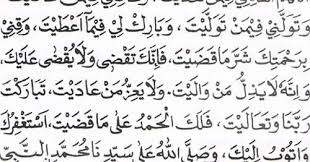 وَتَوَلَّنِيْ فِيْمَنْ تَوَلَّيْتَ ، وَبَارِكْ لِيْ فِيْمَآ اَعْطَيْتَ ، وَقِنِيْ
بِرَحْمَتِكَ شَرَّ مَا قَضَيْتَ، فَاِنَّكَ تَقْضِيْ وَلَا يُقْضٰى عَلَيْكَ،
وَاِنَّهُ لَا يَذِلُّ مَنْ وَالَيْتَ، وَلَا يَعِزُّ مَنْ عَادَيْتَ، تَبَارَكْتَ
رَبَّنَا وَتَعَالَيْتَ، فَلَكَ الْحَمْدُ عَلٰى مَا قَضَيْتَ، اَسْتَغْفِرُكَ
وَاَتُوْبُ اِلَيْكَ، وَصَلَّى اللّٰهُ عَلٰى سَيِّدِنَا مُحَمَّدٍ النَّبِيِّ